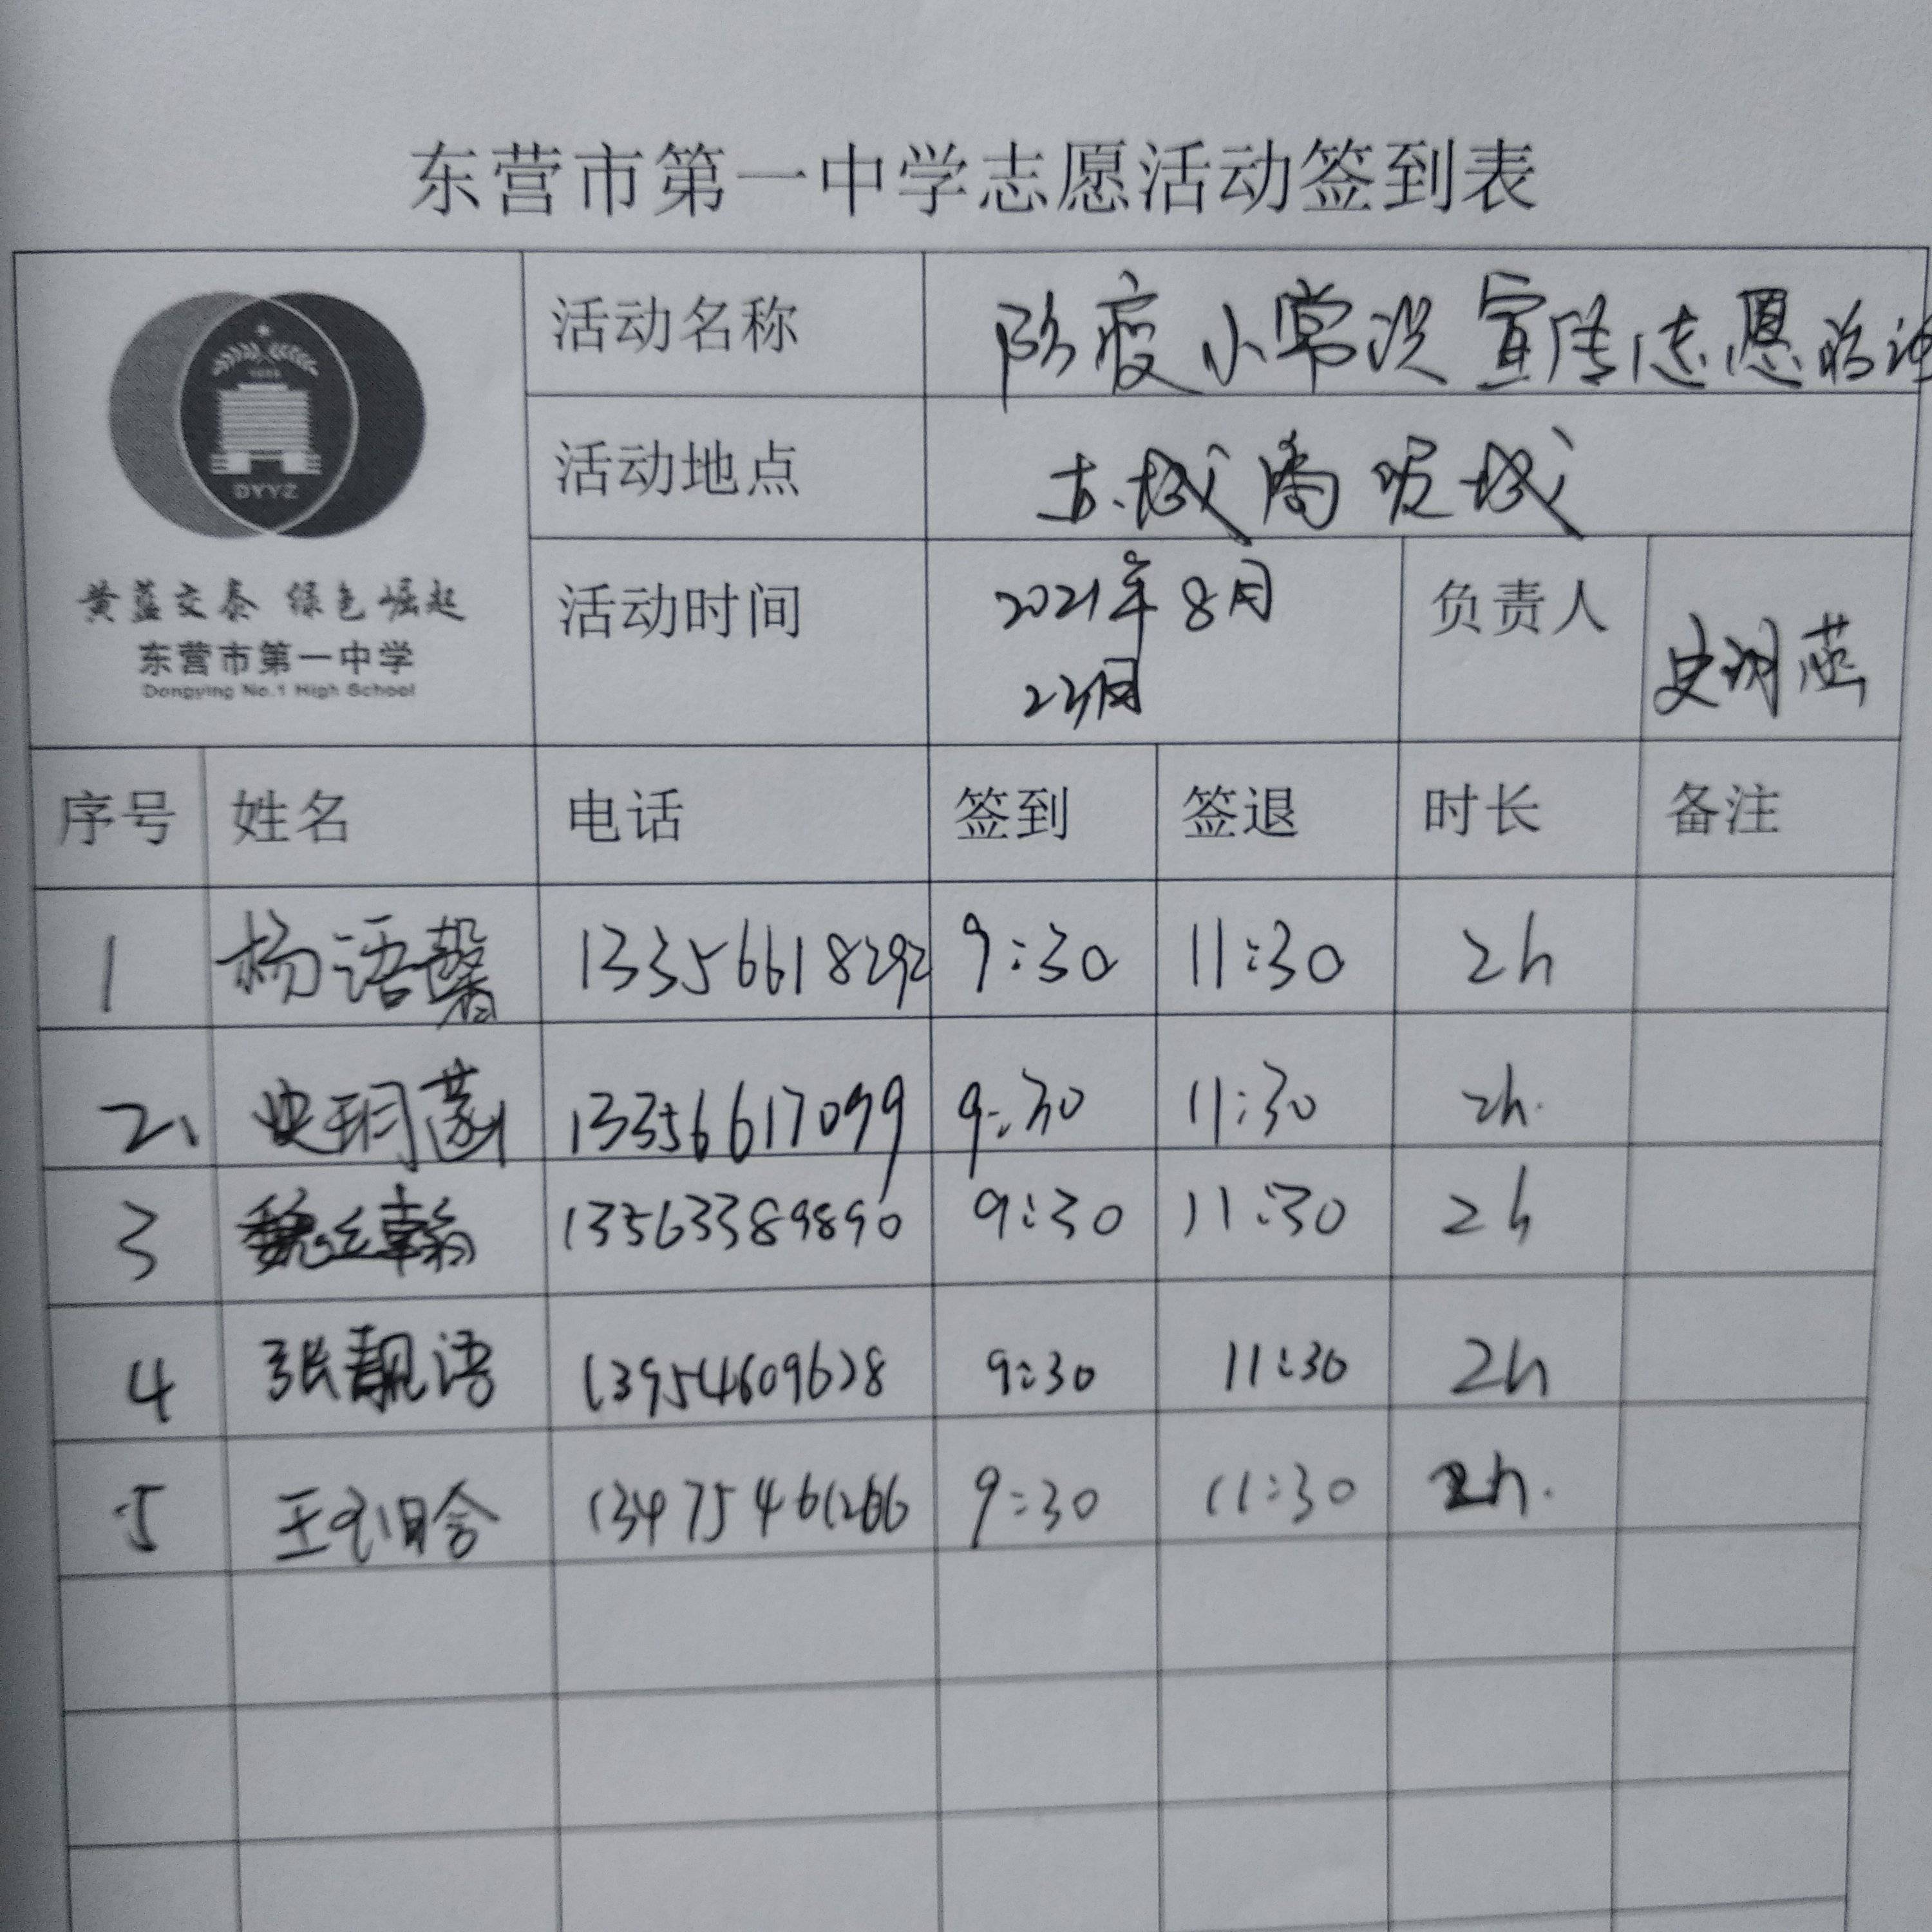 东营市第一中学志愿活动签到表
活动名称 防疫小常识宣传志愿活动
DYYZ
活动地点 东城商贸城
黄蓝交泰 绿色崛起
东营市第一中学
Dongying No.1 High School
活动时间 2021年8月 负责人 史玥
23日
序号 姓名 电话 签到 签退 时长 备注
1 杨语馨 13356618292 9:30 11:30 2h
2、 史玥 13356617099 9:30 11:30 2h.
3 魏 翰 13563389890 9:30 11:30 2h
4 张靓语 13954609628 9:30 11:30 2h
5 王 13475461266 9:30 11:30 2h.